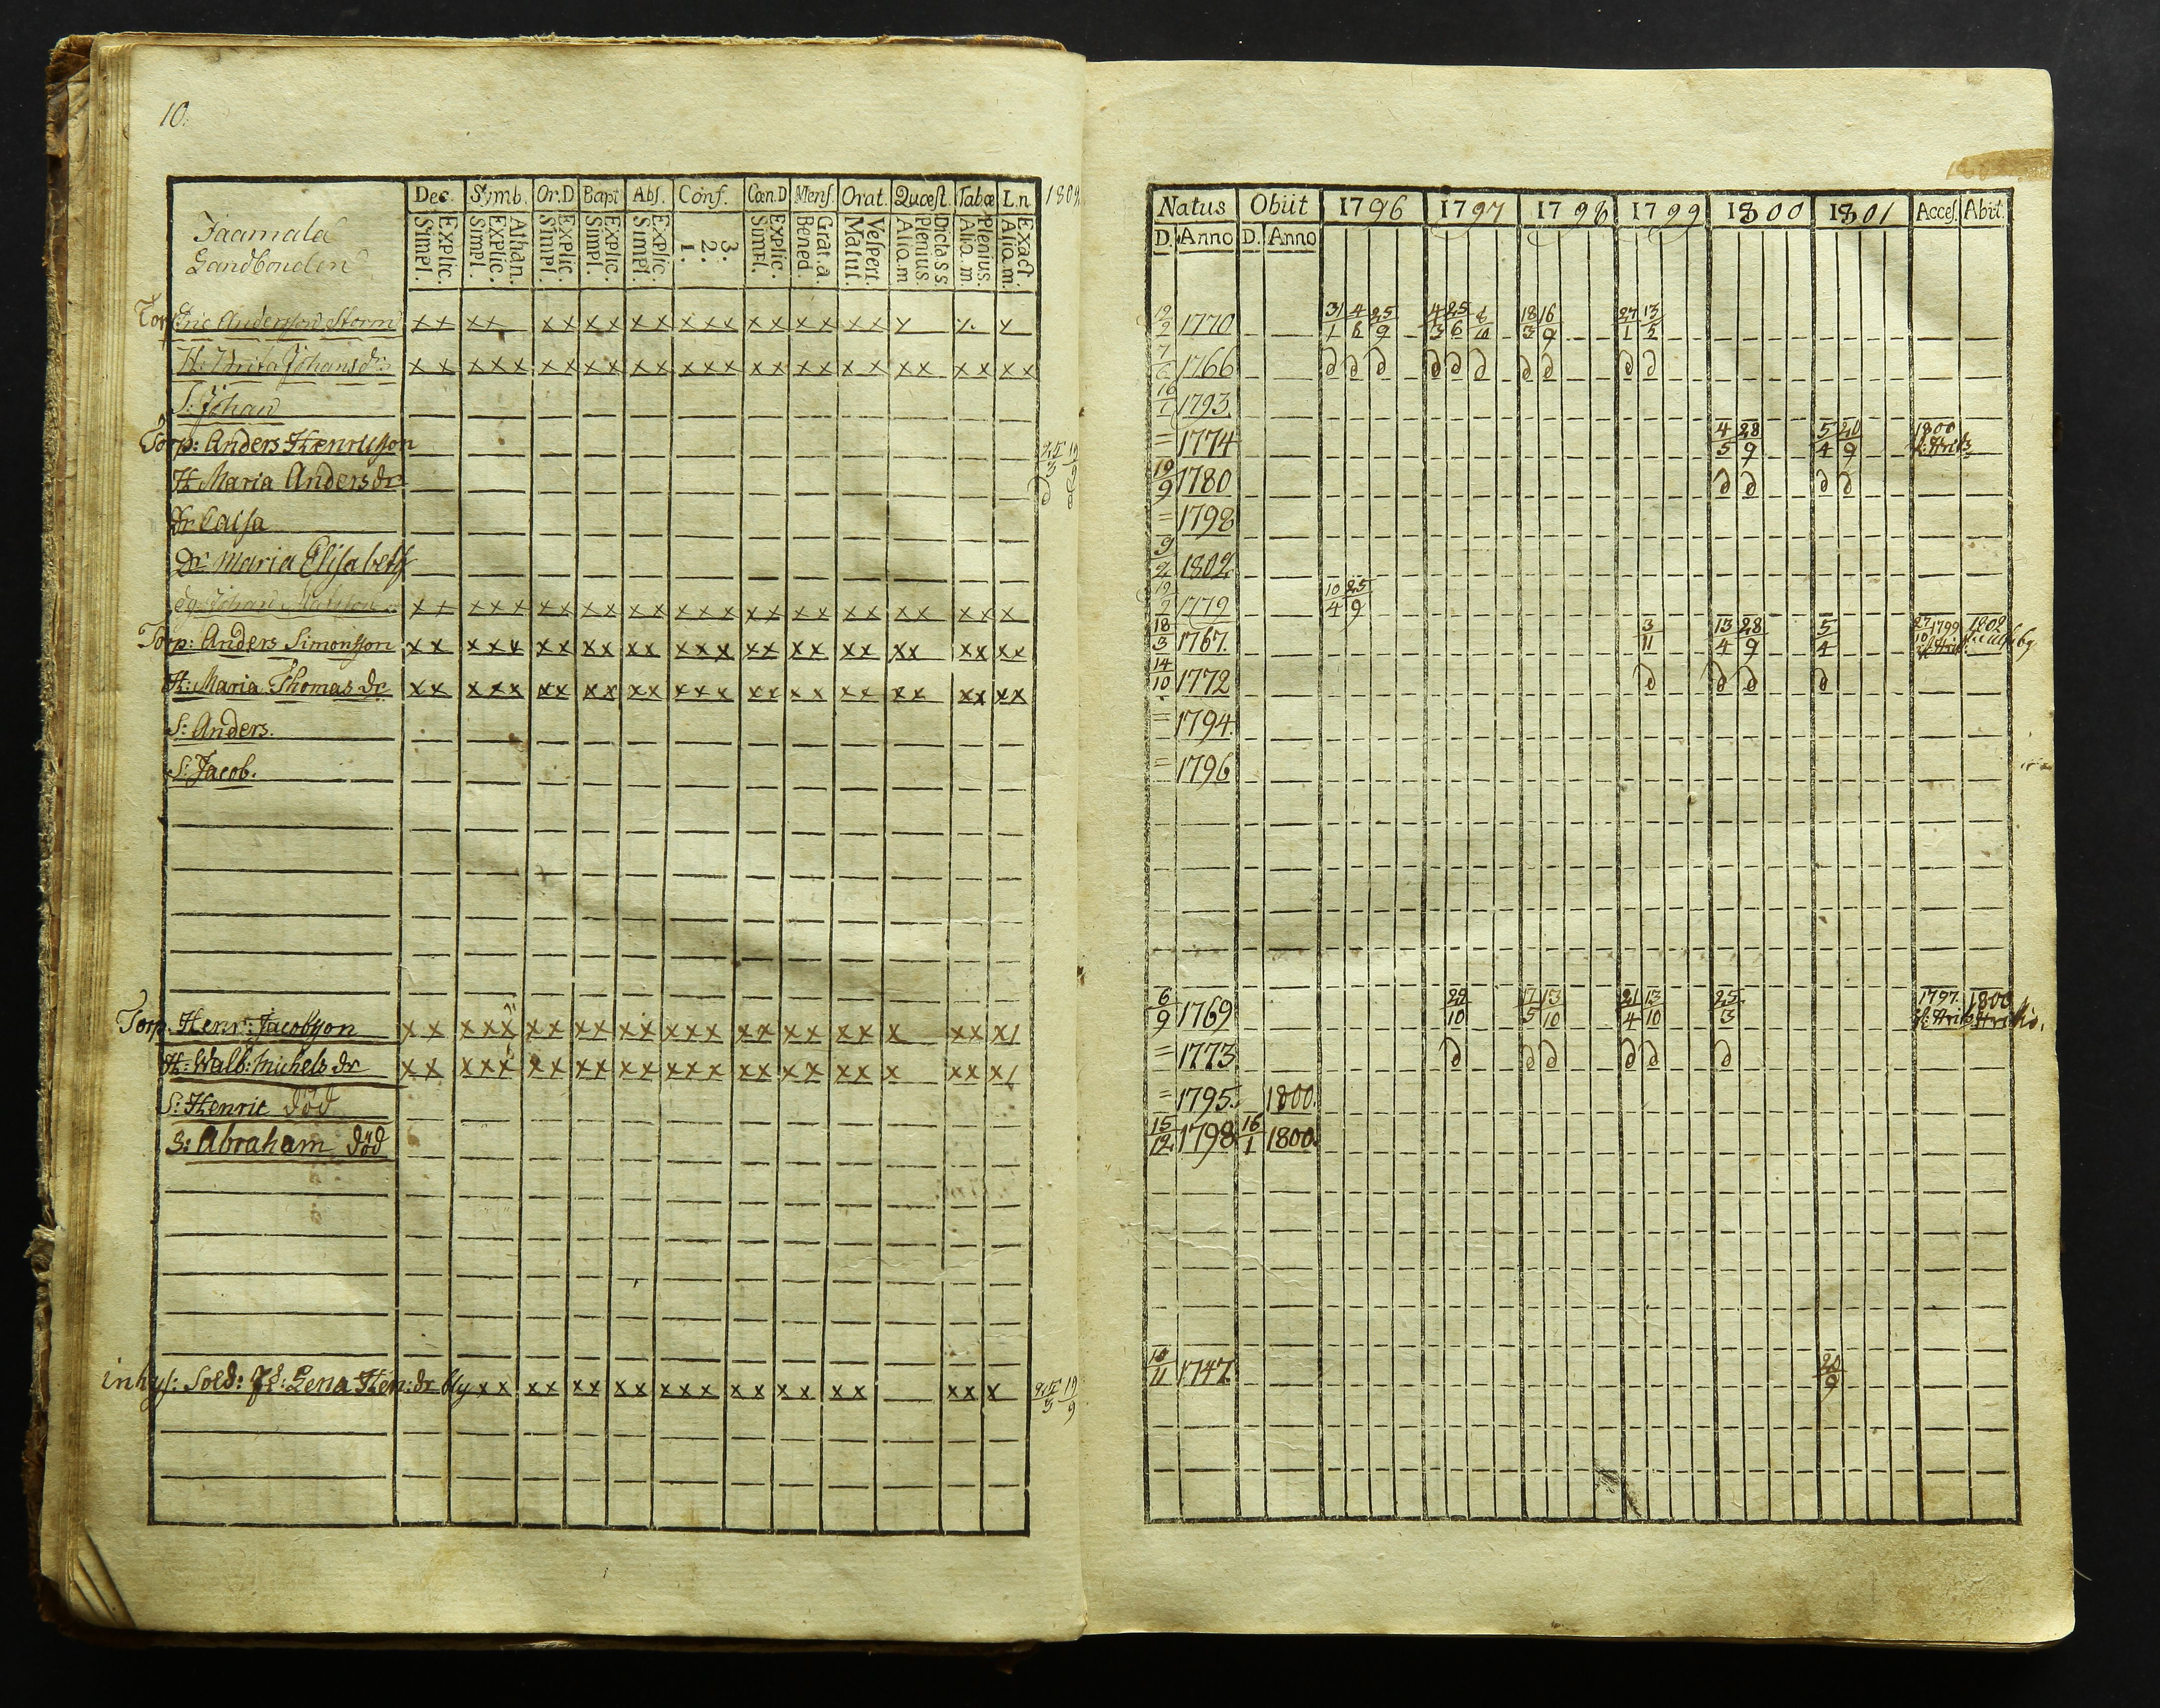 10.
Dec. Simb. Or.D Bapt Abs. Conf. Cœn.D Mens. Orat. Quæst. Tabæ L.n 1802
Simpl. Explic. Simpl. Explic. Athan. Simpl. Explic. Simpl. Explic. Simpl. Explic. 1. 2. 3: Simpl. Explic. Bened. Grat.a. Matut. Vespert. Aliq.m Plenius. Dict.s s Aliq.m Plenius. Aliq.m. Exact.
Jaamala
Landbonden
Torp: Eric Andersson Storm x x x x x x x x x x x x x x x x x x x x x x x
H: Brita Johansdr: x x x x x x x x x x x x x x x x x x x x x x x x x x x x
S: Johan
Torp: Anders Henricsson 25/3 19/9
H. Maria Andersdr d d
Dr. Caisa
Dr. Maria Elisabeth
Johan x x x x x x x x x x x x x x x x x x x x x x x x x x
Torp: Anders Simonsson x x x x x x x x x x x x x x x x x x x x x x x x x x
H: Maria Thomas dr x x x x x x x x x x x x x x x x x x x x x x x x x x
S: Anders.
S: Jacob.
Torp. Henr: Jacobsson x x x x x x x x x x x x x x x x x x x x x x x x x
H: Walb: Michels dr x x x x x x x x x x x x x x x x x x x x x x x x x
S: Henric död
S: Abraham död
inhys: Sold: Lena Hen: dr x x x x x x x x x x x x x x x x x x x x x 25/3 19/9
Natus Obiit 1796 1797 1798 1799 1800 1801 Acces. Abit.
D. Anno D. Anno
1770 31/1 4/6 25/9 4/3 25/6 18/3 16/9 27/1 13/5
1766 d d d d d d d d d d
1793
= 1774 4/5 28/9 5/4 20/9 1800
19/9 1780 d d d d
= 1798
9/2 1802
1779 10/4 25/9
18/3 1767. 3/11 13/4 28/9 5/4 1799 1802
14/10 1772 d d d d
= 1794.
= 1796
6/9 1769 22/10 17/5 13/10 21/4 13/10 25/3 1797. 1800
= 1773 d d d d d d
= 1795. 1800.
15/12 1798 16/1 1800.
10/11 1747 20/9